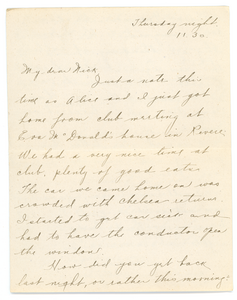 Thursday night.
11.30.
My dear Nina
Just a note this
time as Alice and I just got
home from club meeting at
Eva McDonald's house in Revere.
We had a very nice time at
club, plenty of good eats.
The car we came home on was
crowded with Chelsea returns.
I started to get car sick and
had to have the conductor open
the window.
How did you get back
last night, or rather this morning